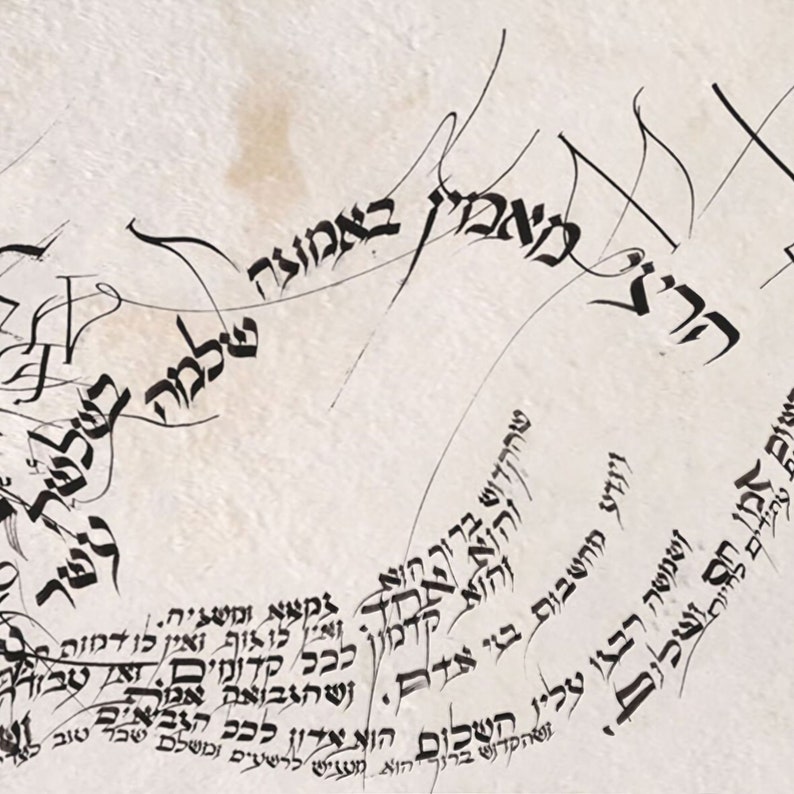 הריני מאמין באמונה שלמה בשלשה עשר
שהקדוש ברוך הוא נמצא ומשגיח.
והוא אחד. ואין לו גוף ואין לו דמות
והוא קדמון לכל קדומים ואין
ויודע מחשבות בני אדם. ושהנבואה אמת
ושמשה רבנו עליו השלום הוא אדון לכל הנביאים
ושהקדוש ברוך הוא מעניש לרשעים ומשלם שכר טוב
אמן חס ושלום.
עתידים לחיות